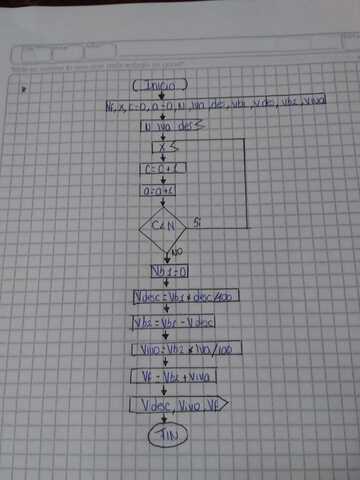 Inicio
Vf, x, c=0, a=0, N, Iva, des, Vb1, Vdes, Vb2, Viva
N, Iva, des
x
c=c+1
a=a+1
C<N
Si
NO
Vb1=0
Vdesc=Vb1*desc/100
Vb2=Vb1-Vdesc
Viva=Vb2*Iva/100
Vf=Vb2+Viva
Vdesc, Viva, Vf
FIN